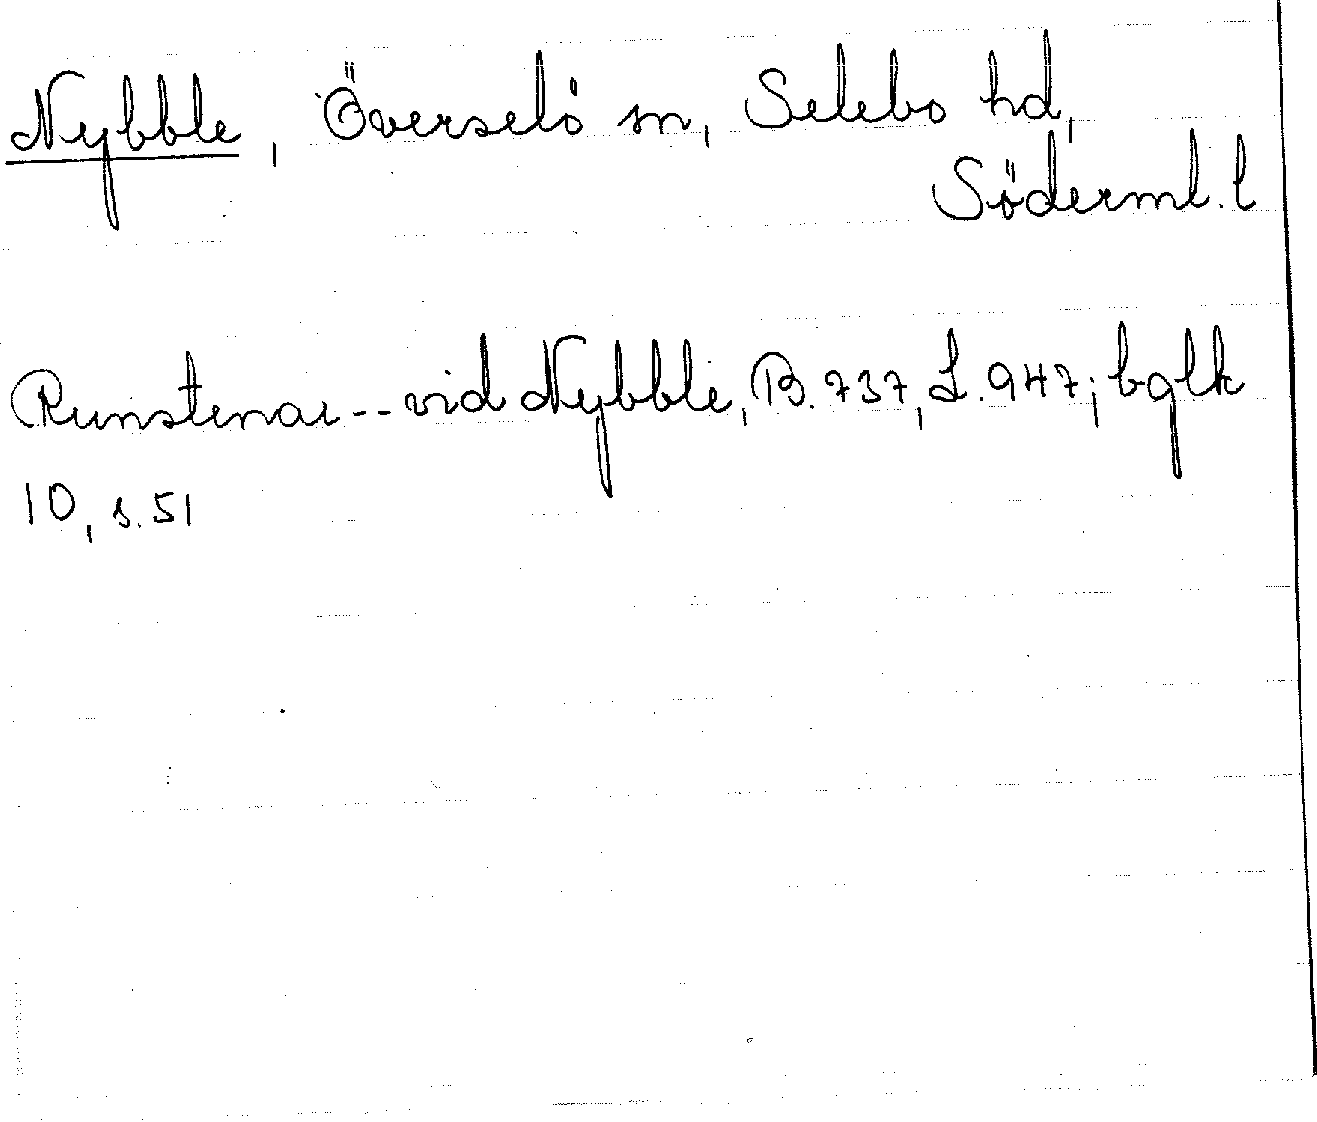 Nybble, Överselö sn, Selebo hd,
Söderml. l
Runstenar -- vid Nybble, B. 737, L. 947; bglk
10, s. 51